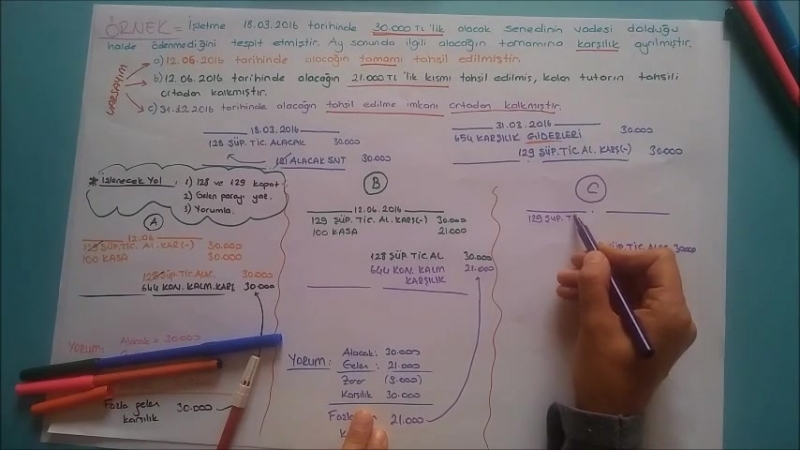 ÖRNEK = İşletme 18.03.2016 tarihinde 30.000 TL'lik alacak senedinin vadesi dolduğu
halde ödenmediğini tespit etmiştir. Ay sonunda ilgili alacağın tamamına karşılık ayrılmıştır.
VARSAYIM
a) 12.06.2016 tarihinde alacağın tamamı tahsil edilmiştir.
b) 12.06.2016 tarihinde alacağın 21.000 TL'lik kısmı tahsil edilmiş, kalan tutarın tahsili
ortadan kalkmıştır.
c) 31.12.2016 tarihinde alacağın tahsil edilme imkanı ortadan kalkmıştır.
18.03.2016
128 ŞÜP. TİC. ALACAK 30.000
121 ALACAK SNT 30.000
31.03.2016
654 KARŞILIK GİDERLERİ 30.000
129 ŞÜP. TİC. AL. KARŞ(-) 30.000
* İzlenecek Yol : 1) 128 ve 129 kapat.
2) Gelen parayı yaz.
3) Yorumla.
A
12.06
129 ŞÜP. TİC. AL. KAR(-) 30.000
100 KASA 30.000
128 ŞÜP. TİC. ALAC. 30.000
644 KON. KALM. KARŞ 30.000
YORUM: Alacak = 30.000
Fazla gelen 30.000
karşılık
B
12.06.2016
129 ŞÜP. TİC. AL. KARŞ(-) 30.000
100 KASA 21.000
128 ŞÜP. TİC. AL 30.000
644 KON. KALM 21.000
KARŞILIK
YORUM: Alacak: 30.000
Gelen : 21.000
Zarar (9.000)
Karşılık 30.000
Fazla 21.000
C
129 ŞÜP. T
ŞÜP. TİC. ALAC 30.000